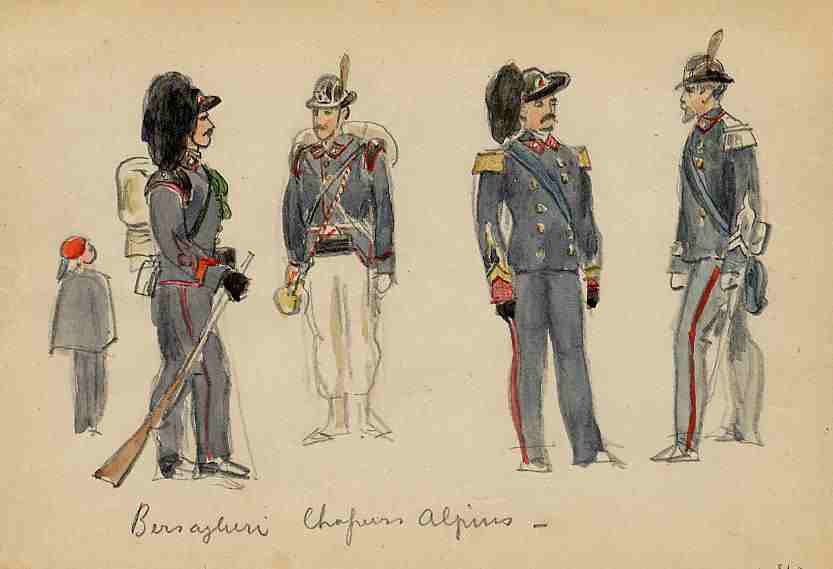 Bersaglieri Chasseurs Alpins –